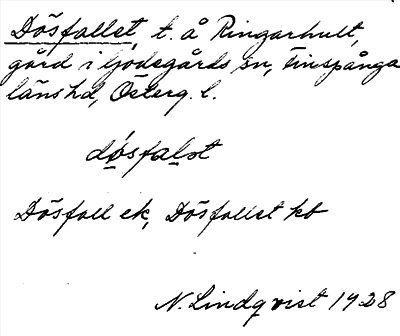 Dösfallet, t. å Ringarhult,
gård i Godegårds sn, Finspånga
länshd, Österg. l.
dösfalst
Dösfall ek, Dösfallet kb
N. Lindqvist 1928